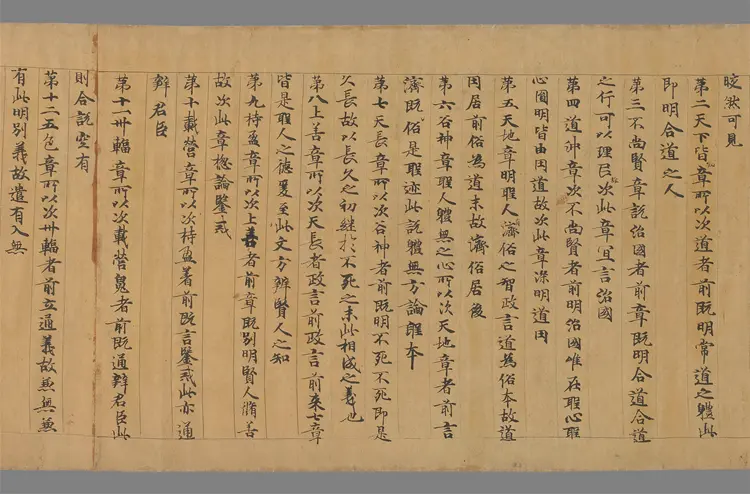 皎然可見
第二天下皆章所以次道者前既明常道之體此
即明合道之人
第三不尚賢章説治國者前章既明合道合道
之行可以理民次此章宜言治國
第四道沖章次不尚賢者前明治國唯在聖心聖
心圓明皆由因道故次此章深明道因
第五天地章明聖人濟俗之智政言道為俗本故道
因居前俗為道末故濟俗居後
第六谷神章聖人體無之心所以次天地章者前言
濟既俗是聖迹此説體無方論聖本
第七天長章所以次谷神者前既明不死不死即是
久長故以長久之初継於不死之末此相成之義也
第八上善章所以次天長者政言前政言前來七章
皆是聖人之德爰至此文方辨賢人之知
第九持盈章所以次上善者前章既別明賢人脩善
故次此章揔論鑒戒
第十載營章所以次持盈者前既言鑒戒此亦通
辯君臣
第十一卅輻章所以次載營魄者前既通辯君臣此
則合説空有
第十二五色章所以次卅輻者前立通義故無無兼
有此明別義故遣有入無